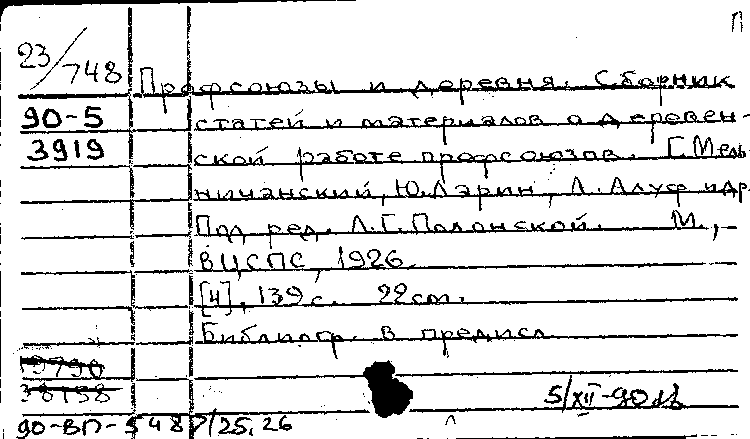 П
23/748
Профсоюзы и деревня. Сборник
90-5
статей и материалов о деревен-
3919
ской работе профсоюзов. Г. Мель-
ничанский, Ю. Ларин, А. Алуф и др.
Под ред. Л. Г. Полонской. М.,
ВЦСПС, 1926.
[4], 139 с. 22 см.
Библиогр. в предисл.
19790
38198
5/XII-90
90-ВП-5487/25,26